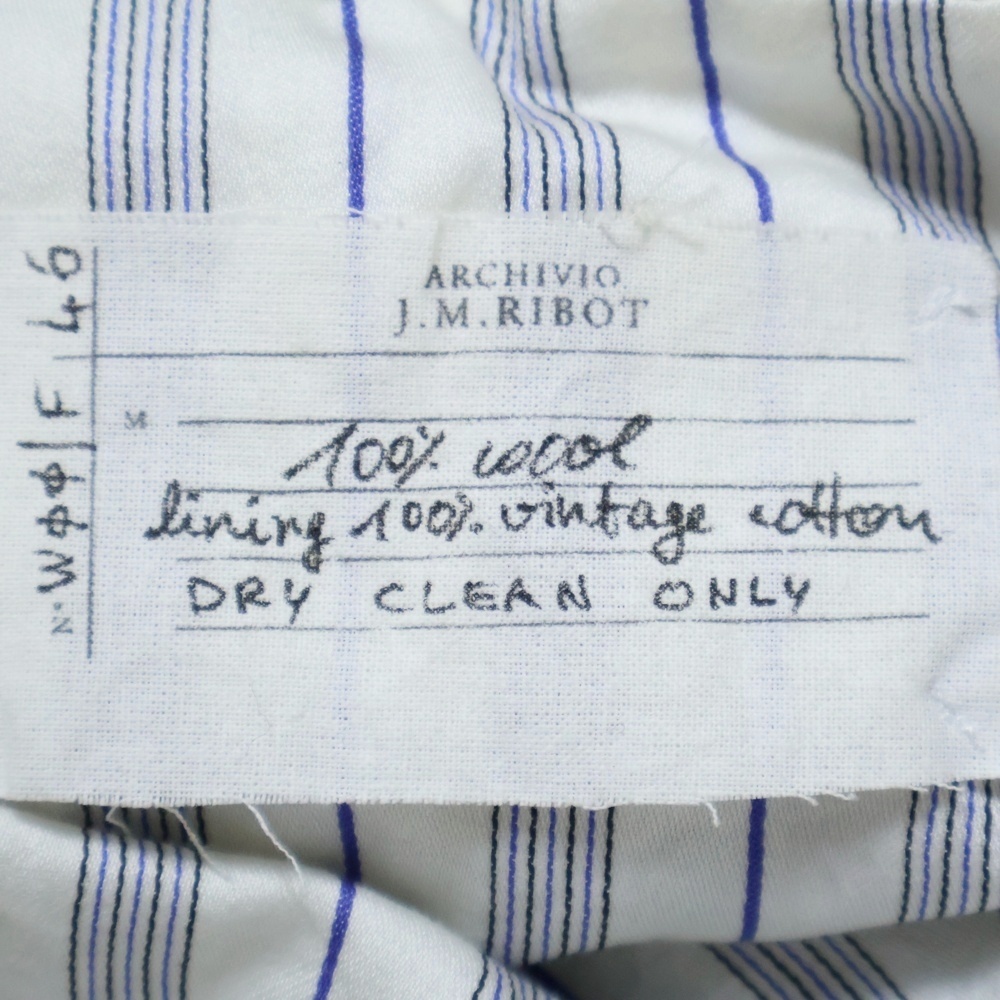 ARCHIVIO
J.M.RIBOT
M
100% wool
lining 100% vintage cotton
DRY CLEAN ONLY
N° WØØ|F 46